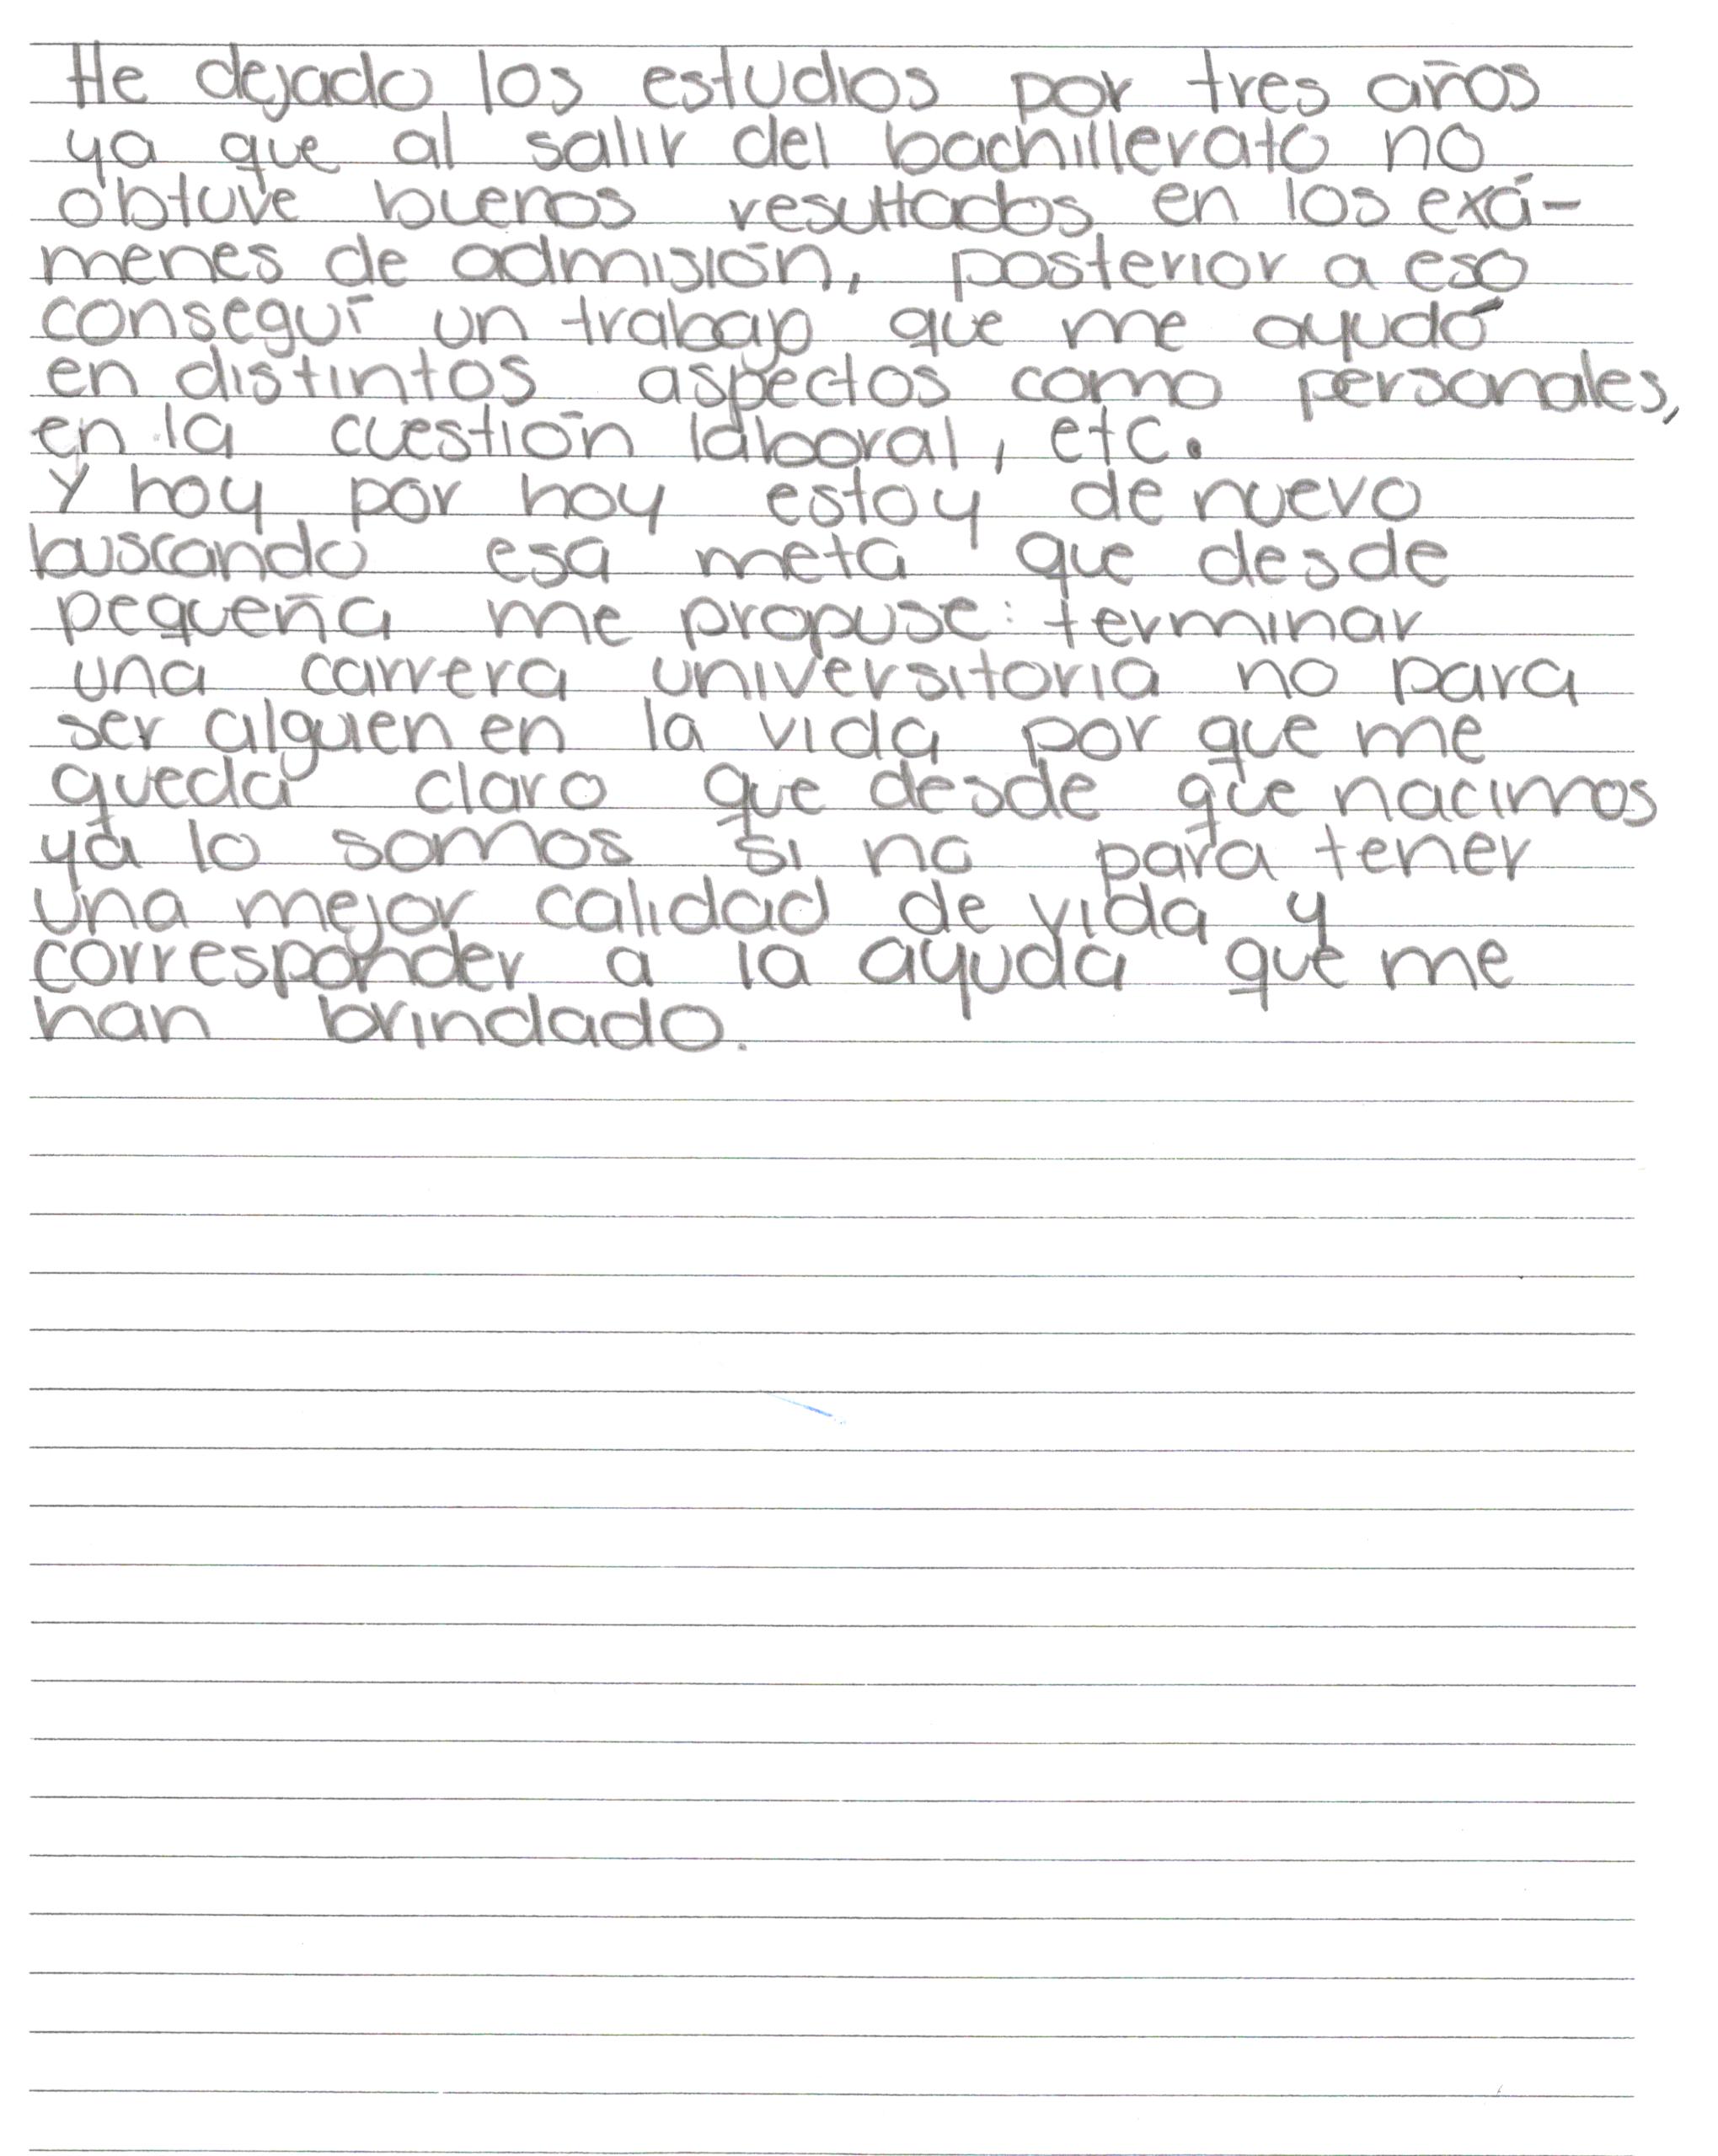 He dejado los estudios por tres años
ya que al salir del bachillerato no
obtuve buenos resultados en los exá-
menes de admisión, posterior a eso
conseguí un trabajo que me ayudó
en distintos aspectos como personales,
en la cuestión laboral, etc.
Y hoy por hoy estoy de nuevo
buscando esa meta que desde
pequeña me propuse: terminar
una carrera universitoria no para
ser alguien en la vida por que me
queda claro que desde que nacimos
ya lo somos si no para tener
una mejor calidad de vida y
corresponder a la ayuda que me
han brindado.